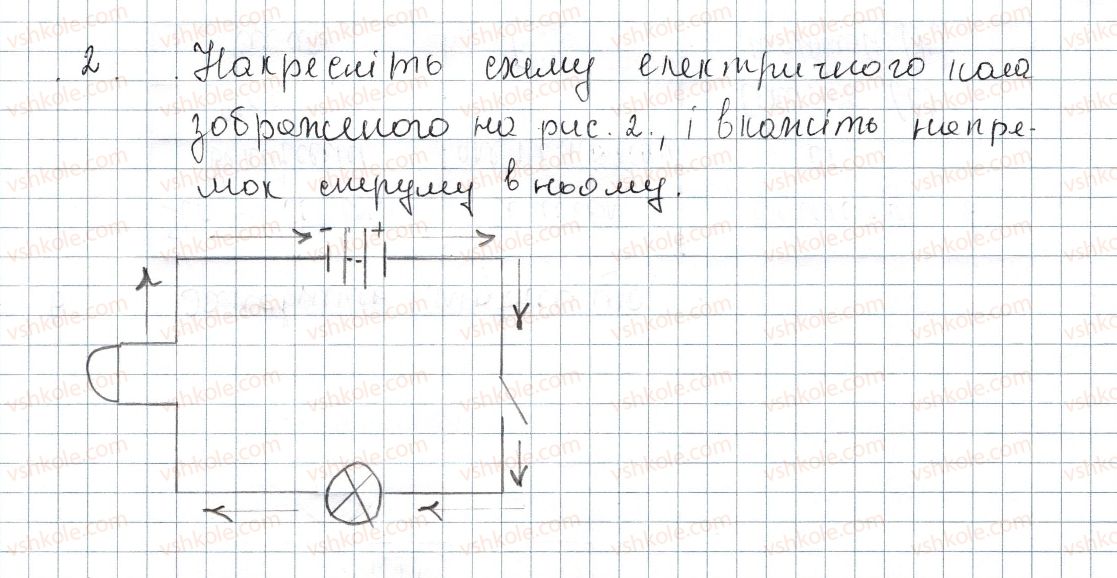 2. Накресліть схему електричного кола
зображеного на рис. 2., і вкажіть напря-
мок струму в ньому.
- +
vshkole.com